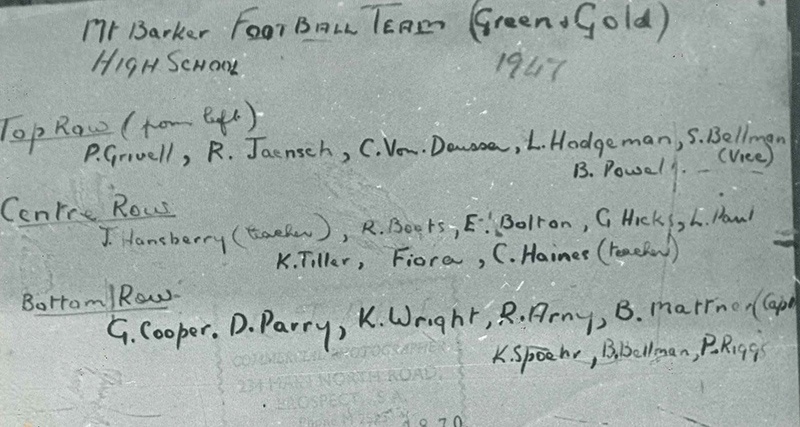 Mt Barker FOOTBALL TEAM (Green & Gold)
HIGH SCHOOL 1947
Top Row (from left)
P. Grivell, R. Jaensch, C. Von. Doussa, L. Hodgeman, S. Bellman (Vice)
B. Powell.
Centre Row
J. Hansberry (teacher), R. Boots, E. Bolton, G Hicks, L. Paul
K. Tiller, Fiora, C. Haines (teacher)
Bottom Row
G. Cooper. D. Parry, K. Wright, R. Arny, B. Mattner (Capt
K. Spoehr, B. Bellman, P. Riggs
COMMERCIAL PHOTOGRAPHER
234 MAIN NORTH ROAD,
PROSPECT, S.A.
Phone M